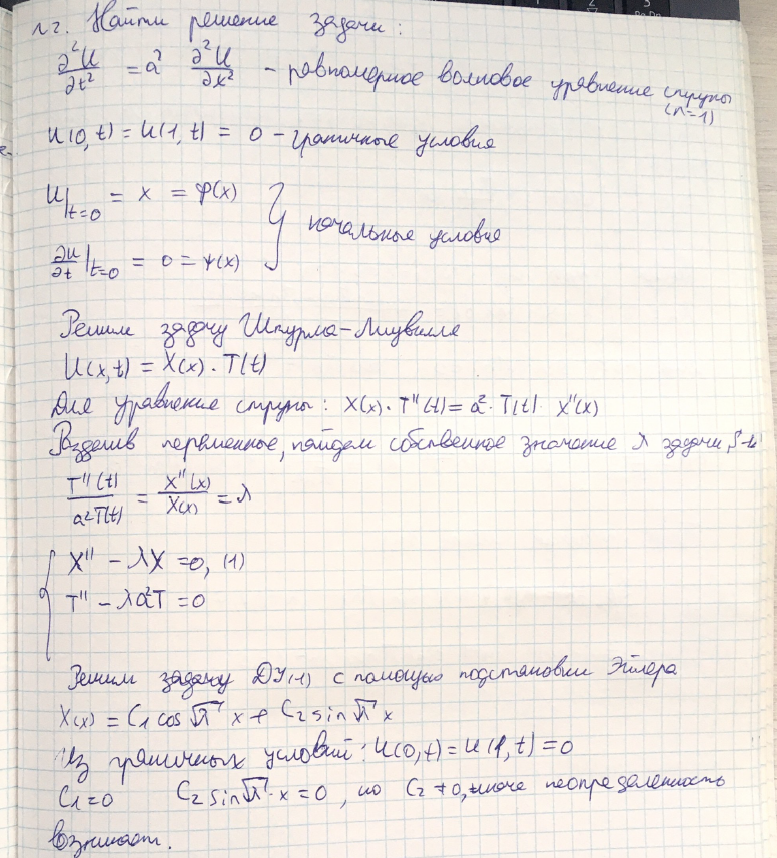 №2. Найти решение задачи:
∂²U/∂t² = a² ∂²U/∂x² - равномерное волновое уравнение струны
(n=1)
U(0,t) = U(1,t) = 0 - граничные условия
U|t=0 = x = φ(x)
начальные условия
∂u/∂t|t=0 = 0 = ψ(x)
Решим задачу Штурма-Лиувилля
U(x,t) = X(x) · T(t)
Для уравнение струны: X(x) · T''(t) = a² · T(t) · X''(x)
Разделив переменные, найдем собственное значение λ задачи
T''(t)/a²T(t) = X''(x)/X(x) = λ
X'' - λX = 0, (1)
T'' - λa²T = 0
Решим задачу ДУ(1) с помощью подстановки Эйлера
X(x) = C₁ cos √λ x + C₂ sin √λ x
Из граничных условий: U(0,t) = U(1,t) = 0
C₁ = 0 C₂ sin √λ · x = 0, но C₂ ≠ 0, иначе неопределенность
возникает.